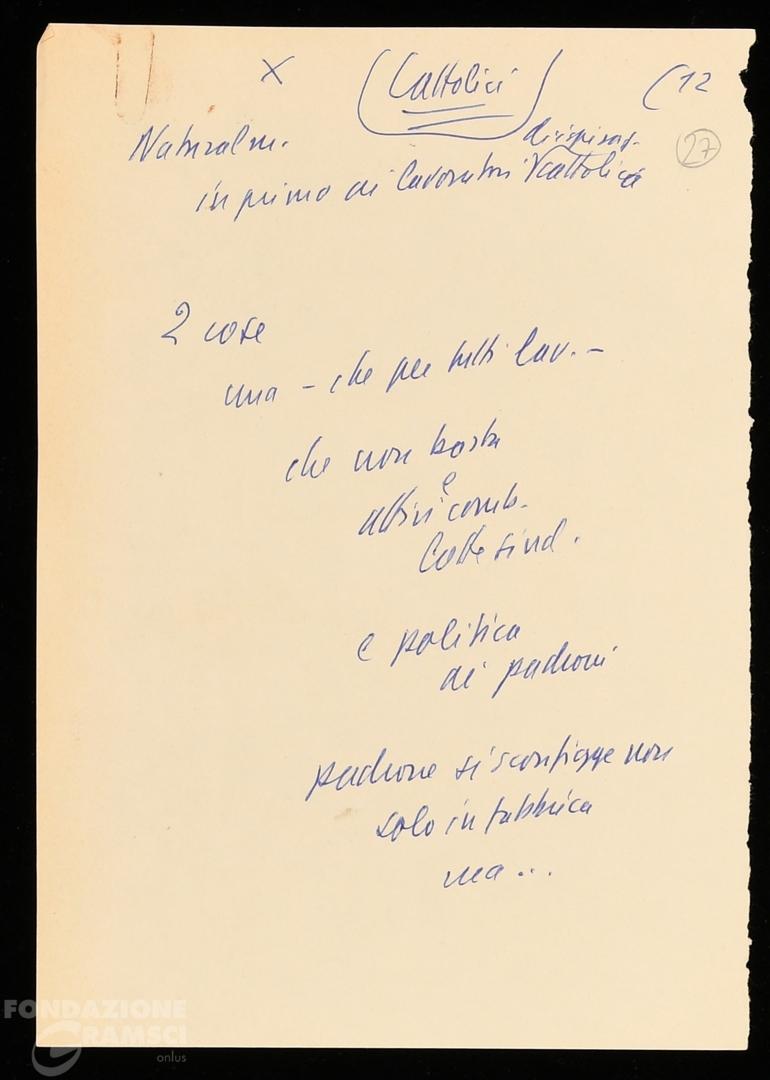 X (Cattolici) (12
27
Naturalm.
di ispiraz.
in primo ai lavoratori cattolica
2 cose
una – che per tutti lav. –
che non basta
e
attivi comb.
lotte sind.
e politica
ai padroni
padrone si sconfigge non
solo in fabbrica
ma...
FONDAZIONE
GRAMSCI
onlus